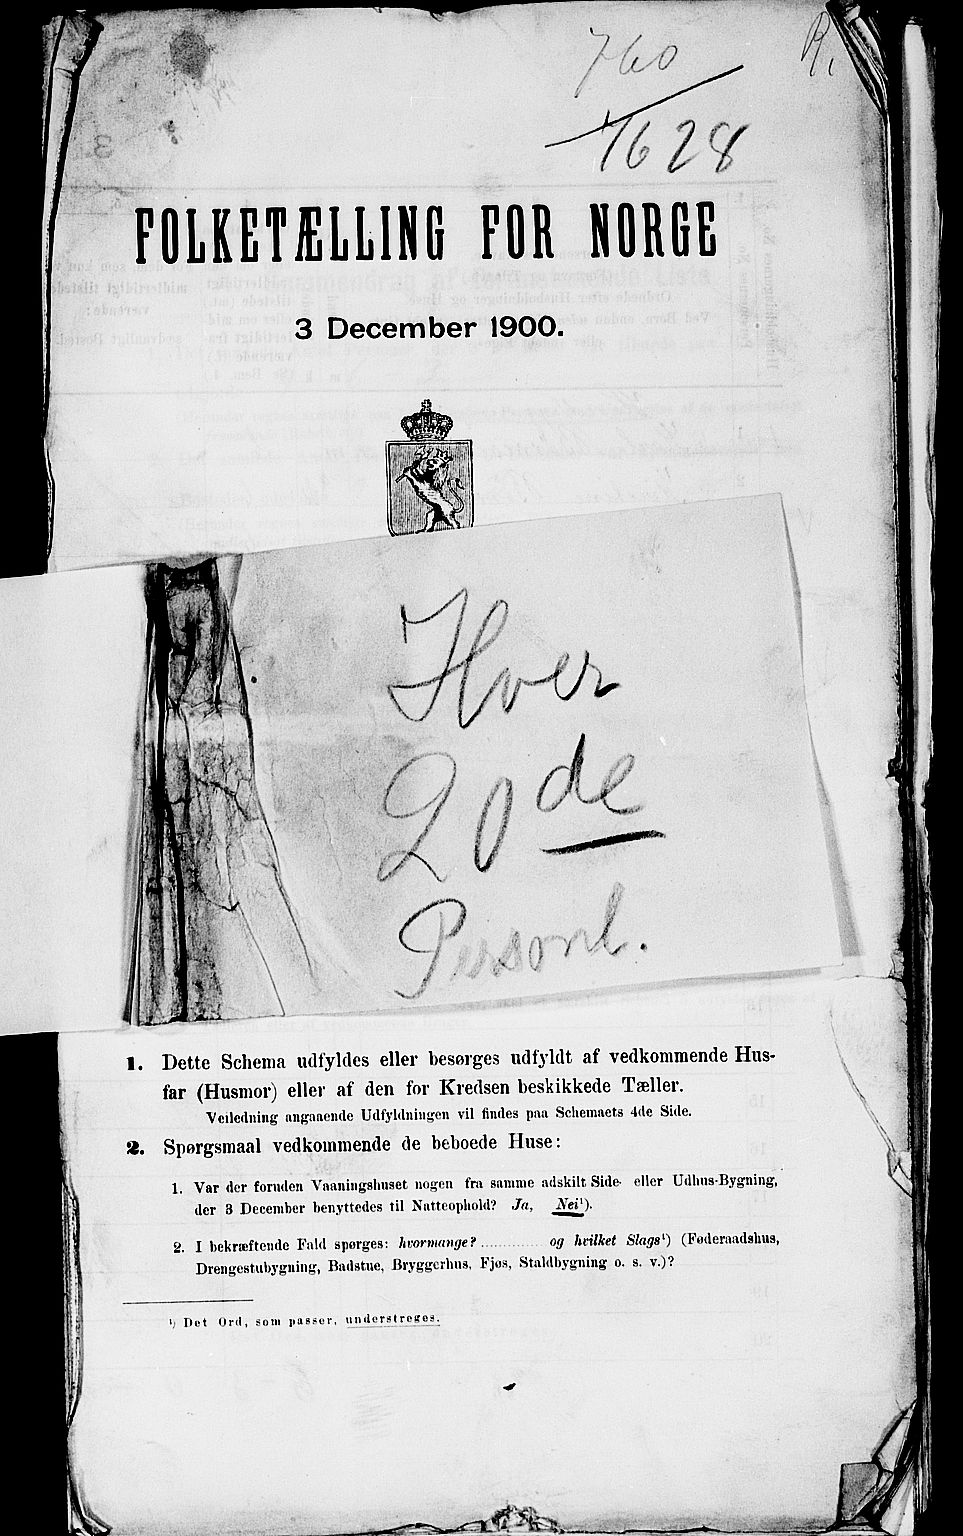 760
1628
FOLKETÆLLING FOR NORGE
3 December 1900.
Hver
20de
Personl.
1. Dette Schema udfyldes eller besørges udfyldt af vedkommende Hus-
far (Husmor) eller af den for Kredsen beskikkede Tæller.
Veiledning angaaende Udfyldningen vil findes paa Schemaets 4de Side.
2. Spørgsmaal vedkommende de beboede Huse:
1. Var der foruden Vaaningshuset nogen fra samme adskilt Side- eller Udhus-Bygning,
der 3 December benyttedes til Natteophold? Ja, Nei¹).
2. I bekræftende Fald spørges: hvormange? ............ og hvilket Slags¹) (Føderaadshus,
Drengestubygning, Badstue, Bryggerhus, Fjøs, Staldbygning o. s. v.)?
¹) Det Ord, som passer, understreges.